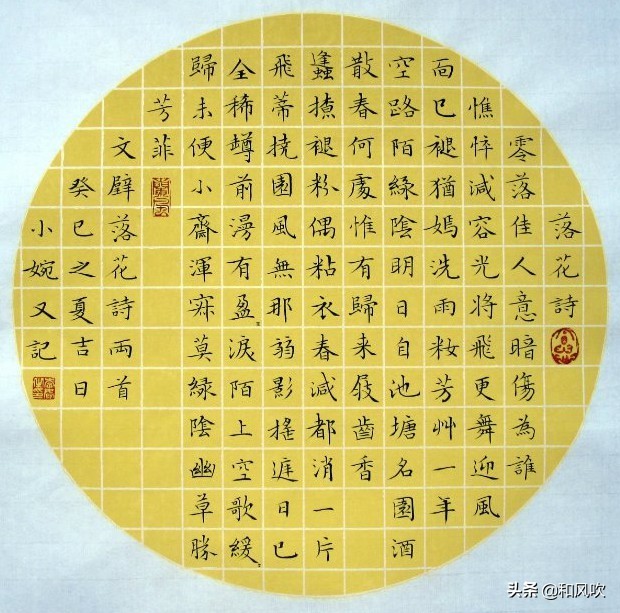 落花詩
零落佳人意暗傷為誰
憔悴減容光將飛更舞迎風
面已褪猶嫣洗雨粧芳艸一年
空路陌綠陰明日自池塘名園酒
散春何處惟有歸来屐齒香
蠭撩褪粉偶粘衣春減都消一片
飛蒂撓園風無那弱影搖遲日已
全稀罇前漫有盈〻淚陌上空歌緩〻
歸未便小齋渾寂莫綠陰幽草勝
芳菲
文壁落花詩兩首
癸巳之夏吉日
小婉又記
头条 @和风吹